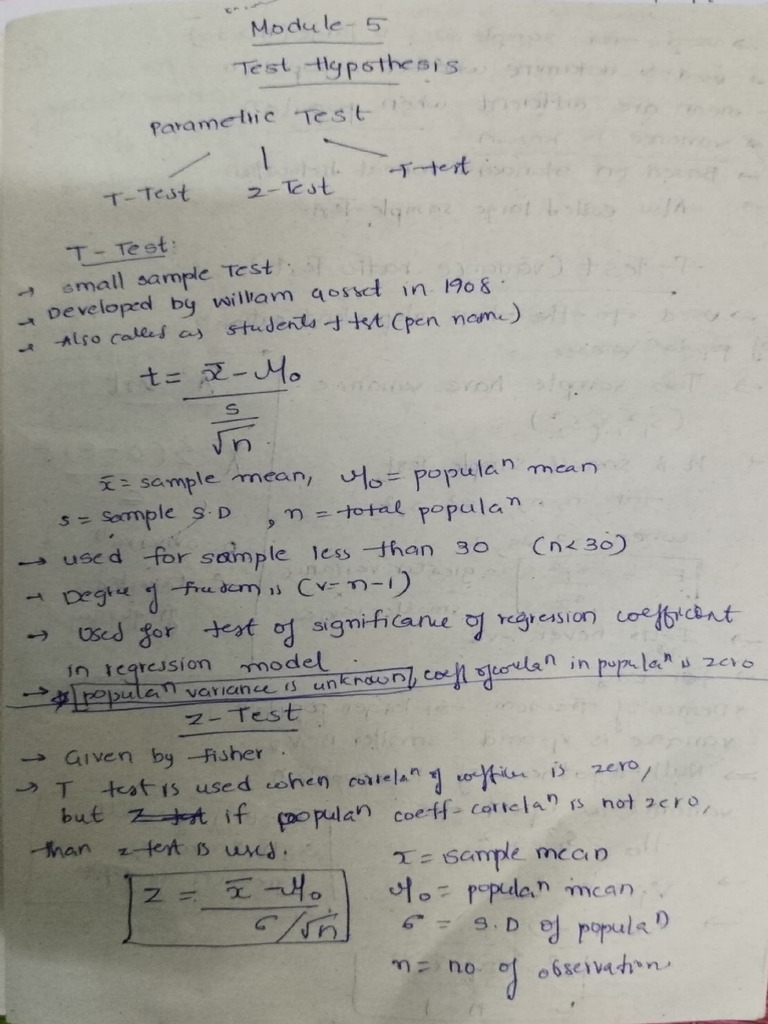 Module-5
Test Hypothesis
Parametric Test
T-Test Z-Test T-test
T-Test:
→ small sample Test
→ Developed by William Gosset in 1908.
→ Also called as students t test (pen name)
t = x̄ - μ₀
s
√n
x̄ = sample mean, μ₀ = populaⁿ mean
s = sample S.D , n = total populaⁿ.
→ used for sample less than 30 (n<30)
→ Degree of freedom is (v=n-1)
→ Used for test of significance of regression coefficient
in regression model.
→ populaⁿ variance is unknown, coeff of correlaⁿ in populaⁿ is zero
Z-Test
→ Given by fisher.
→ T test is used when correlaⁿ of is zero,
but Z test if populaⁿ coeff-correlaⁿ is not zero,
than z test is used.
z = x̄ - μ₀
σ/√n
x = sample mean
μ₀ = populaⁿ mean
σ = S.D of populaⁿ
n = no. of observation.